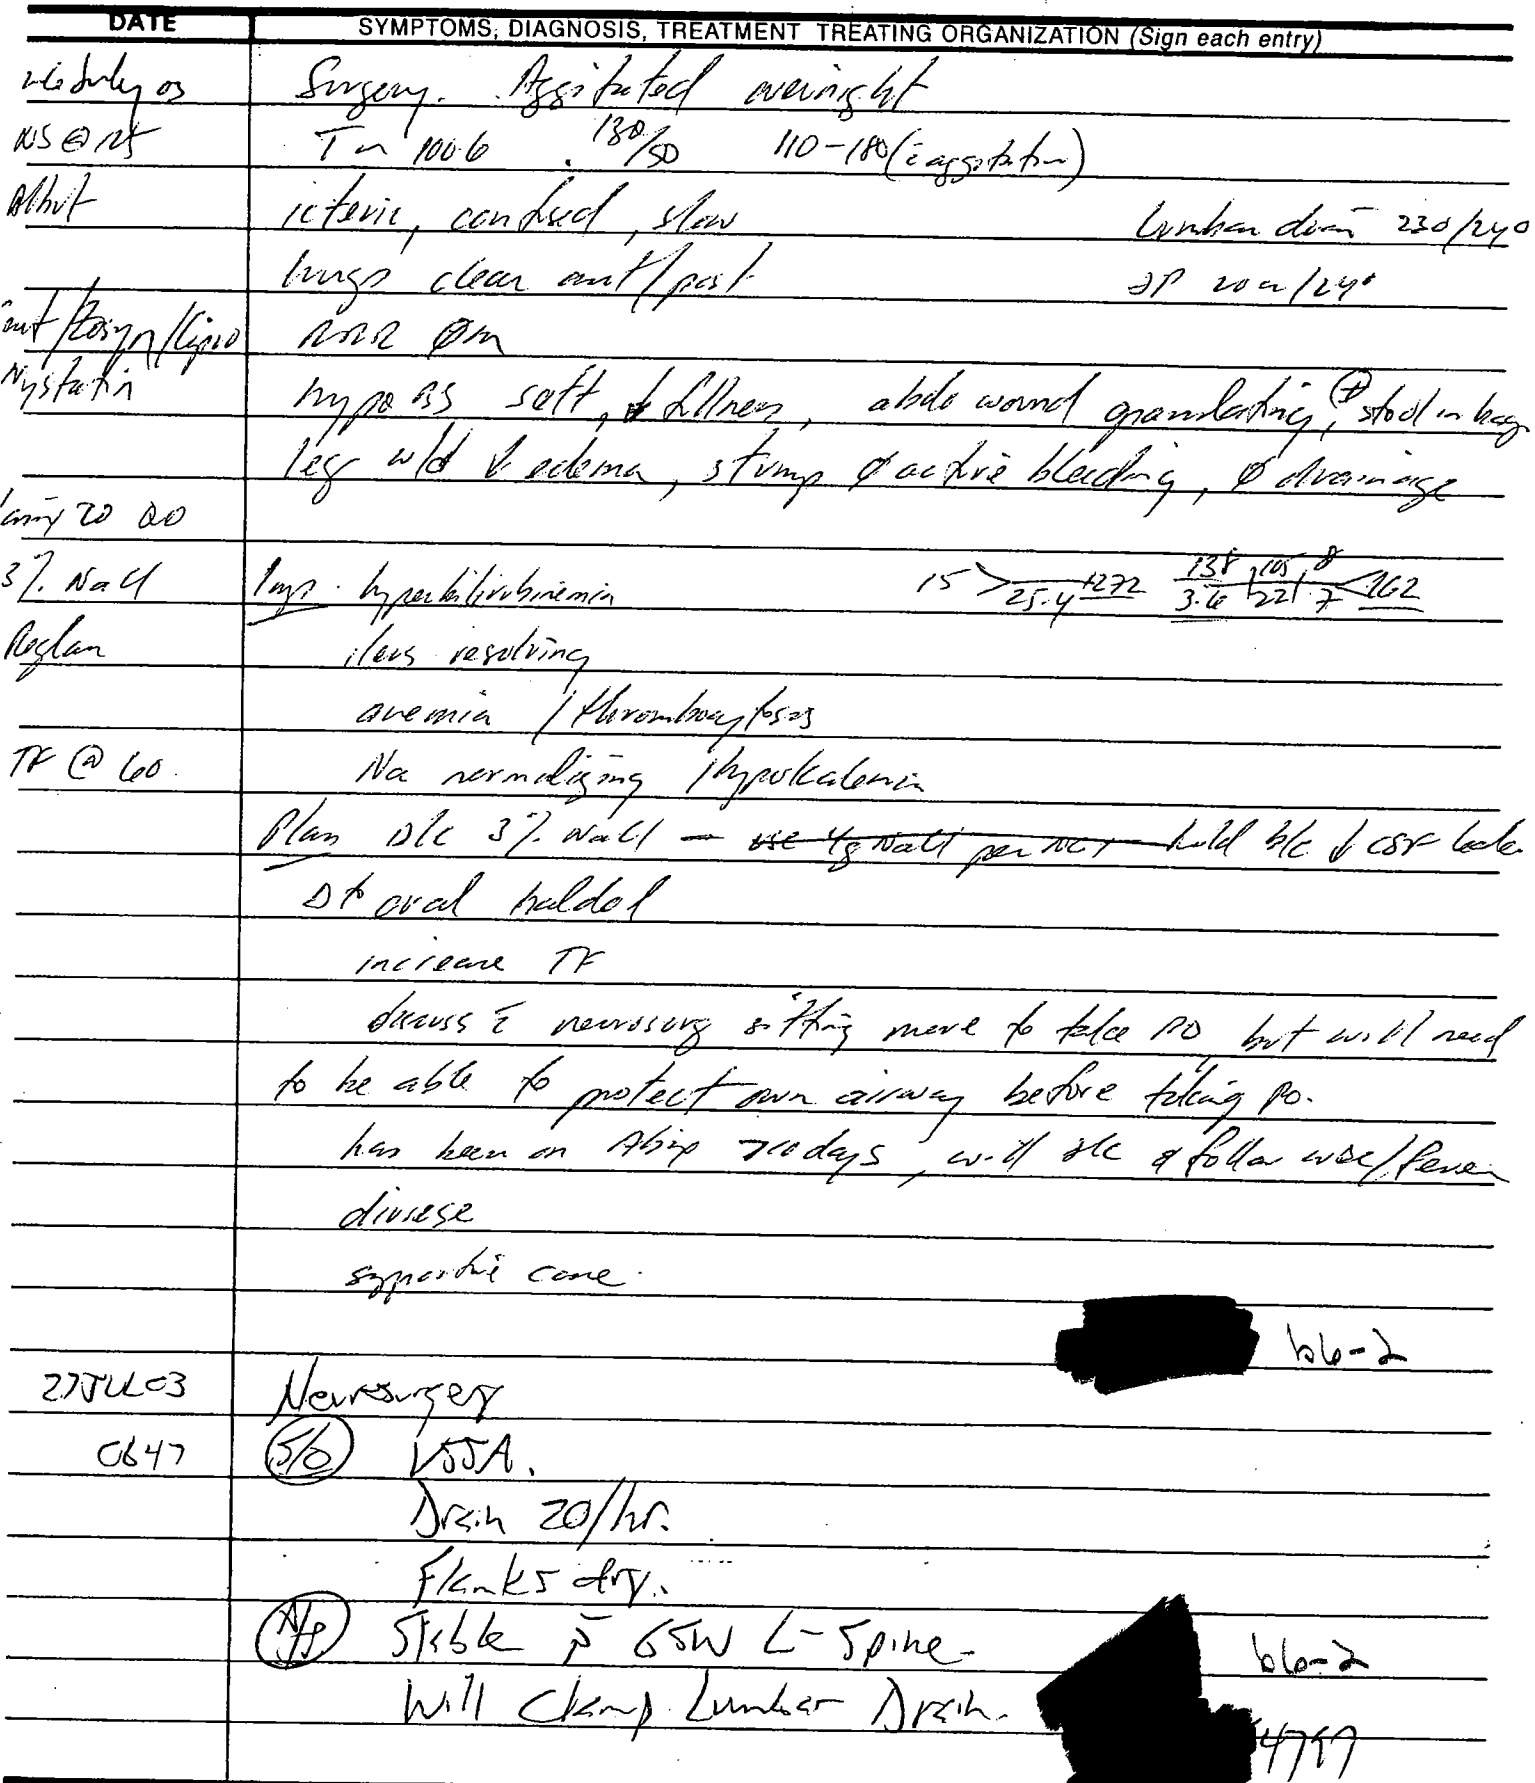 DATE SYMPTOMS, DIAGNOSIS, TREATMENT TREATING ORGANIZATION (Sign each entry)
July 03 Surgery. Aggitated overnight
NS @ 100.6 130/50 110-180 (c̄ aggitation)
icteric, confused, slow Lumbar drain 230/24°
lungs clear ant/post JP 20cc/24°
/Zosyn/Cipro RRR Øm
Nystatin hypo BS soft, ↓ fullness, abdo wound granulating, ⊕ stool in bag
legs ↓ edema, stump Ø active bleeding, Ø drainage
20 QD
3% NaCl Imp. hyperbilirubinemia 15 25.4 1272 138 105 8 3.6 22 7 162
Reglan ileus resolving
anemia / thrombocytosis
TF @ 60. Na normalizing / hypokalemia
Plan D/c 3% NaCl — use 4g NaCl per hold b/c ↓ CSF leak
Δ to oral haldol
increase TF
discuss c̄ neurosurg sitting more to take PO, but will need
to be able to protect own airway before taking po.
has been on >10 days, will d/c & follow WBC/fever
diurese
supportive care.
b6-2
27JUL03 Neurosurgery
0647 S/O VSSA.
Drain 20/hr.
Flanks dry.
A/P Stable p̄ GSW L-Spine.
b6-2
Will clamp Lumbar Drain.
4797